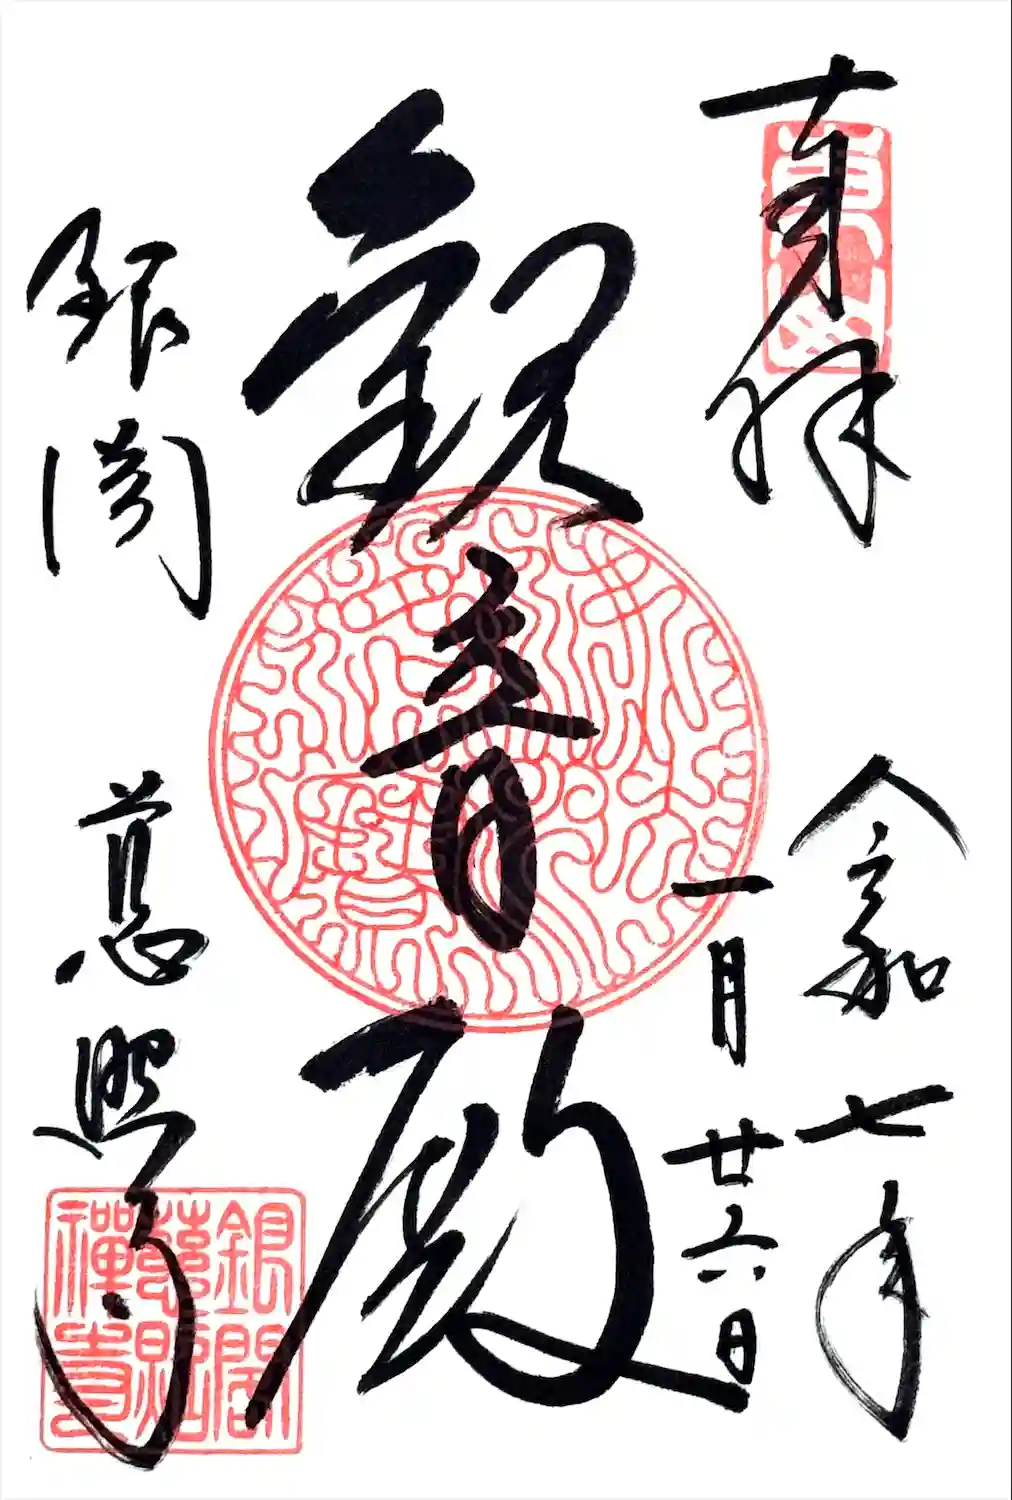 奉拝
令和七年
一月廿六日
観音殿
銀閣
慈照寺
東山
銀閣
慈照
禅寺